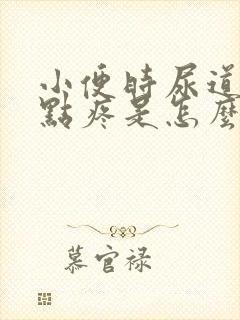 小便時尿道
點疼是怎麼
慕官禄